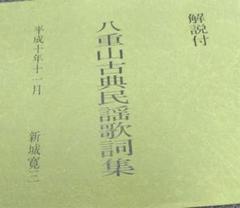 解説付
八重山古典民謡歌詞集
平成十年十一月
新城寛三